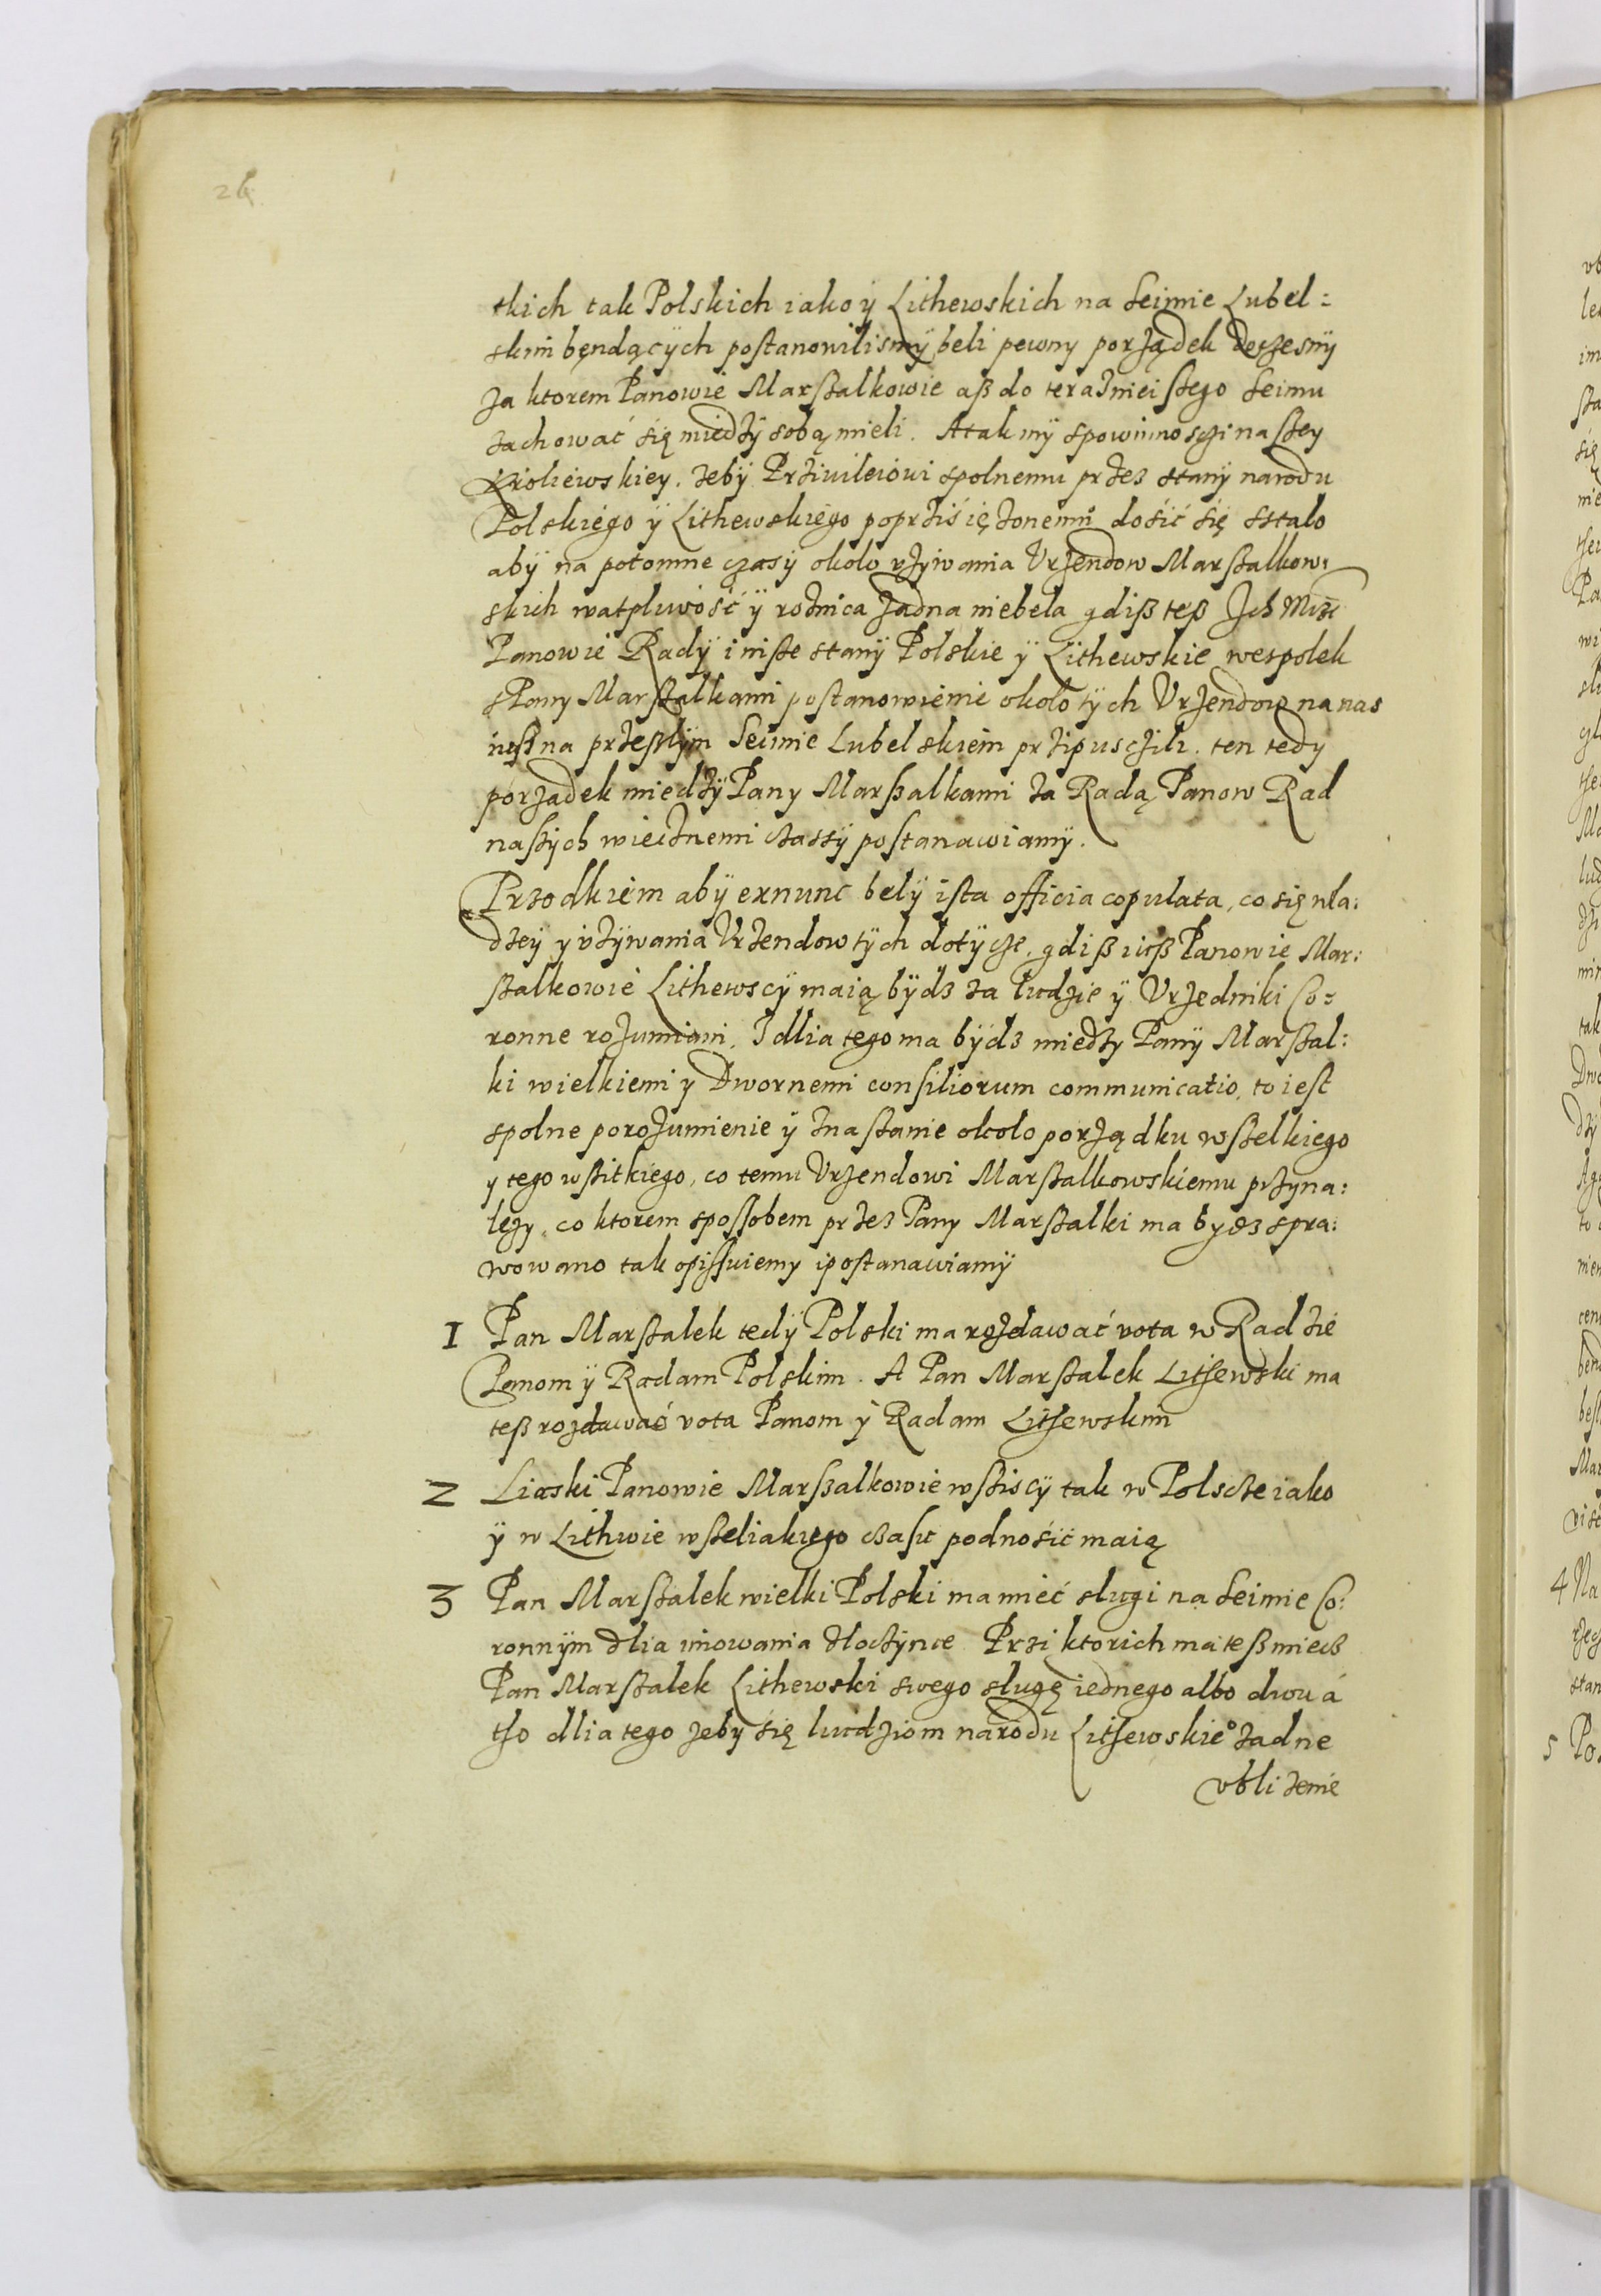 24
tkich tak Polskich iako ÿ Lithewskich na Seimie Lubel:
skim będącÿch postanowilismÿ beli pewny porządek doczesnÿ
za ktorem Panowie Marszalkowie asz do teraznieiszego Seimu
zachować się miedzÿ sobą mieli. A tak mÿ spowinnosczi naszey
Kroliewskiey. zebÿ Prziwileiowi spolnemu przez stanÿ narodu
Polskiego ÿ Lithewskiego poprzisięzonemu dosić się sstalo
abÿ na potomne czasÿ okolo vzywania Vrzendow Marszalkow:
skich watpliwość ÿ roznica zadna niebela gdisz tesz Jch Mczi
Panowie Radÿ i insze stanÿ Polskie ÿ Lithewskie wespolek
s Pany Marszalkami postanowienie okolo tÿch Vrzendow na nas
iusz na przeszlÿm Seimie Lubelskiem przipusczili. ten tedy
porzadek miedzÿ Pany Marszalkami za Radą Panow Rad
naszÿch wiecznemi czassÿ postanawiamÿ.
Przodkiem abÿ exnunc belÿ ista officia copulata, co się wla:
dzeÿ y vzÿwania Vrzendow tÿch dotÿcze. gdisz iusz Panowie Mar:
szalkowie Lithewscÿ maią bÿdz za ludzie ÿ Vrzedniki Co:
ronne rozumiani. I dlia tego ma bÿdz miedzy Panÿ Marszal:
ki wielkiemi y Dwornemi consiliorum communicatio, to iest
spolne porozumienie ÿ znaszanie okolo porządku wszelkiego
y tego wszitkiego, co temu Vrzendowi Marszalkowskiemu przyna:
lezy, co ktorem spossobem przez Pany Marszalki ma bydz spra:
wowano tak opissuiemy i postanawiamÿ
1 Pan Marszalek tedÿ Polski ma rozdawać vota w Radzie
Panom ÿ Radam Polskim. A Pan Marszalek Lithewski ma
tesz rozdawać vota Panom ÿ Radam Lithewskim
2 Liaski Panowie Marszalkowie wsziscÿ tak w Polscze iako
ÿ w Lithwie wszeliakiego czasu podnosić maią
3 Pan Marszalek wielki Polski ma mieć slugi na Seimie Co:
ronnÿm dlia imowania zloczÿnce Przi ktorich ma tesz miecz
Pan Marszalek Lithewski swego slugę iednego albo dwu á
tho dlia tego zeby się ludziom narodu Lithewskie° zadne
vblizenie